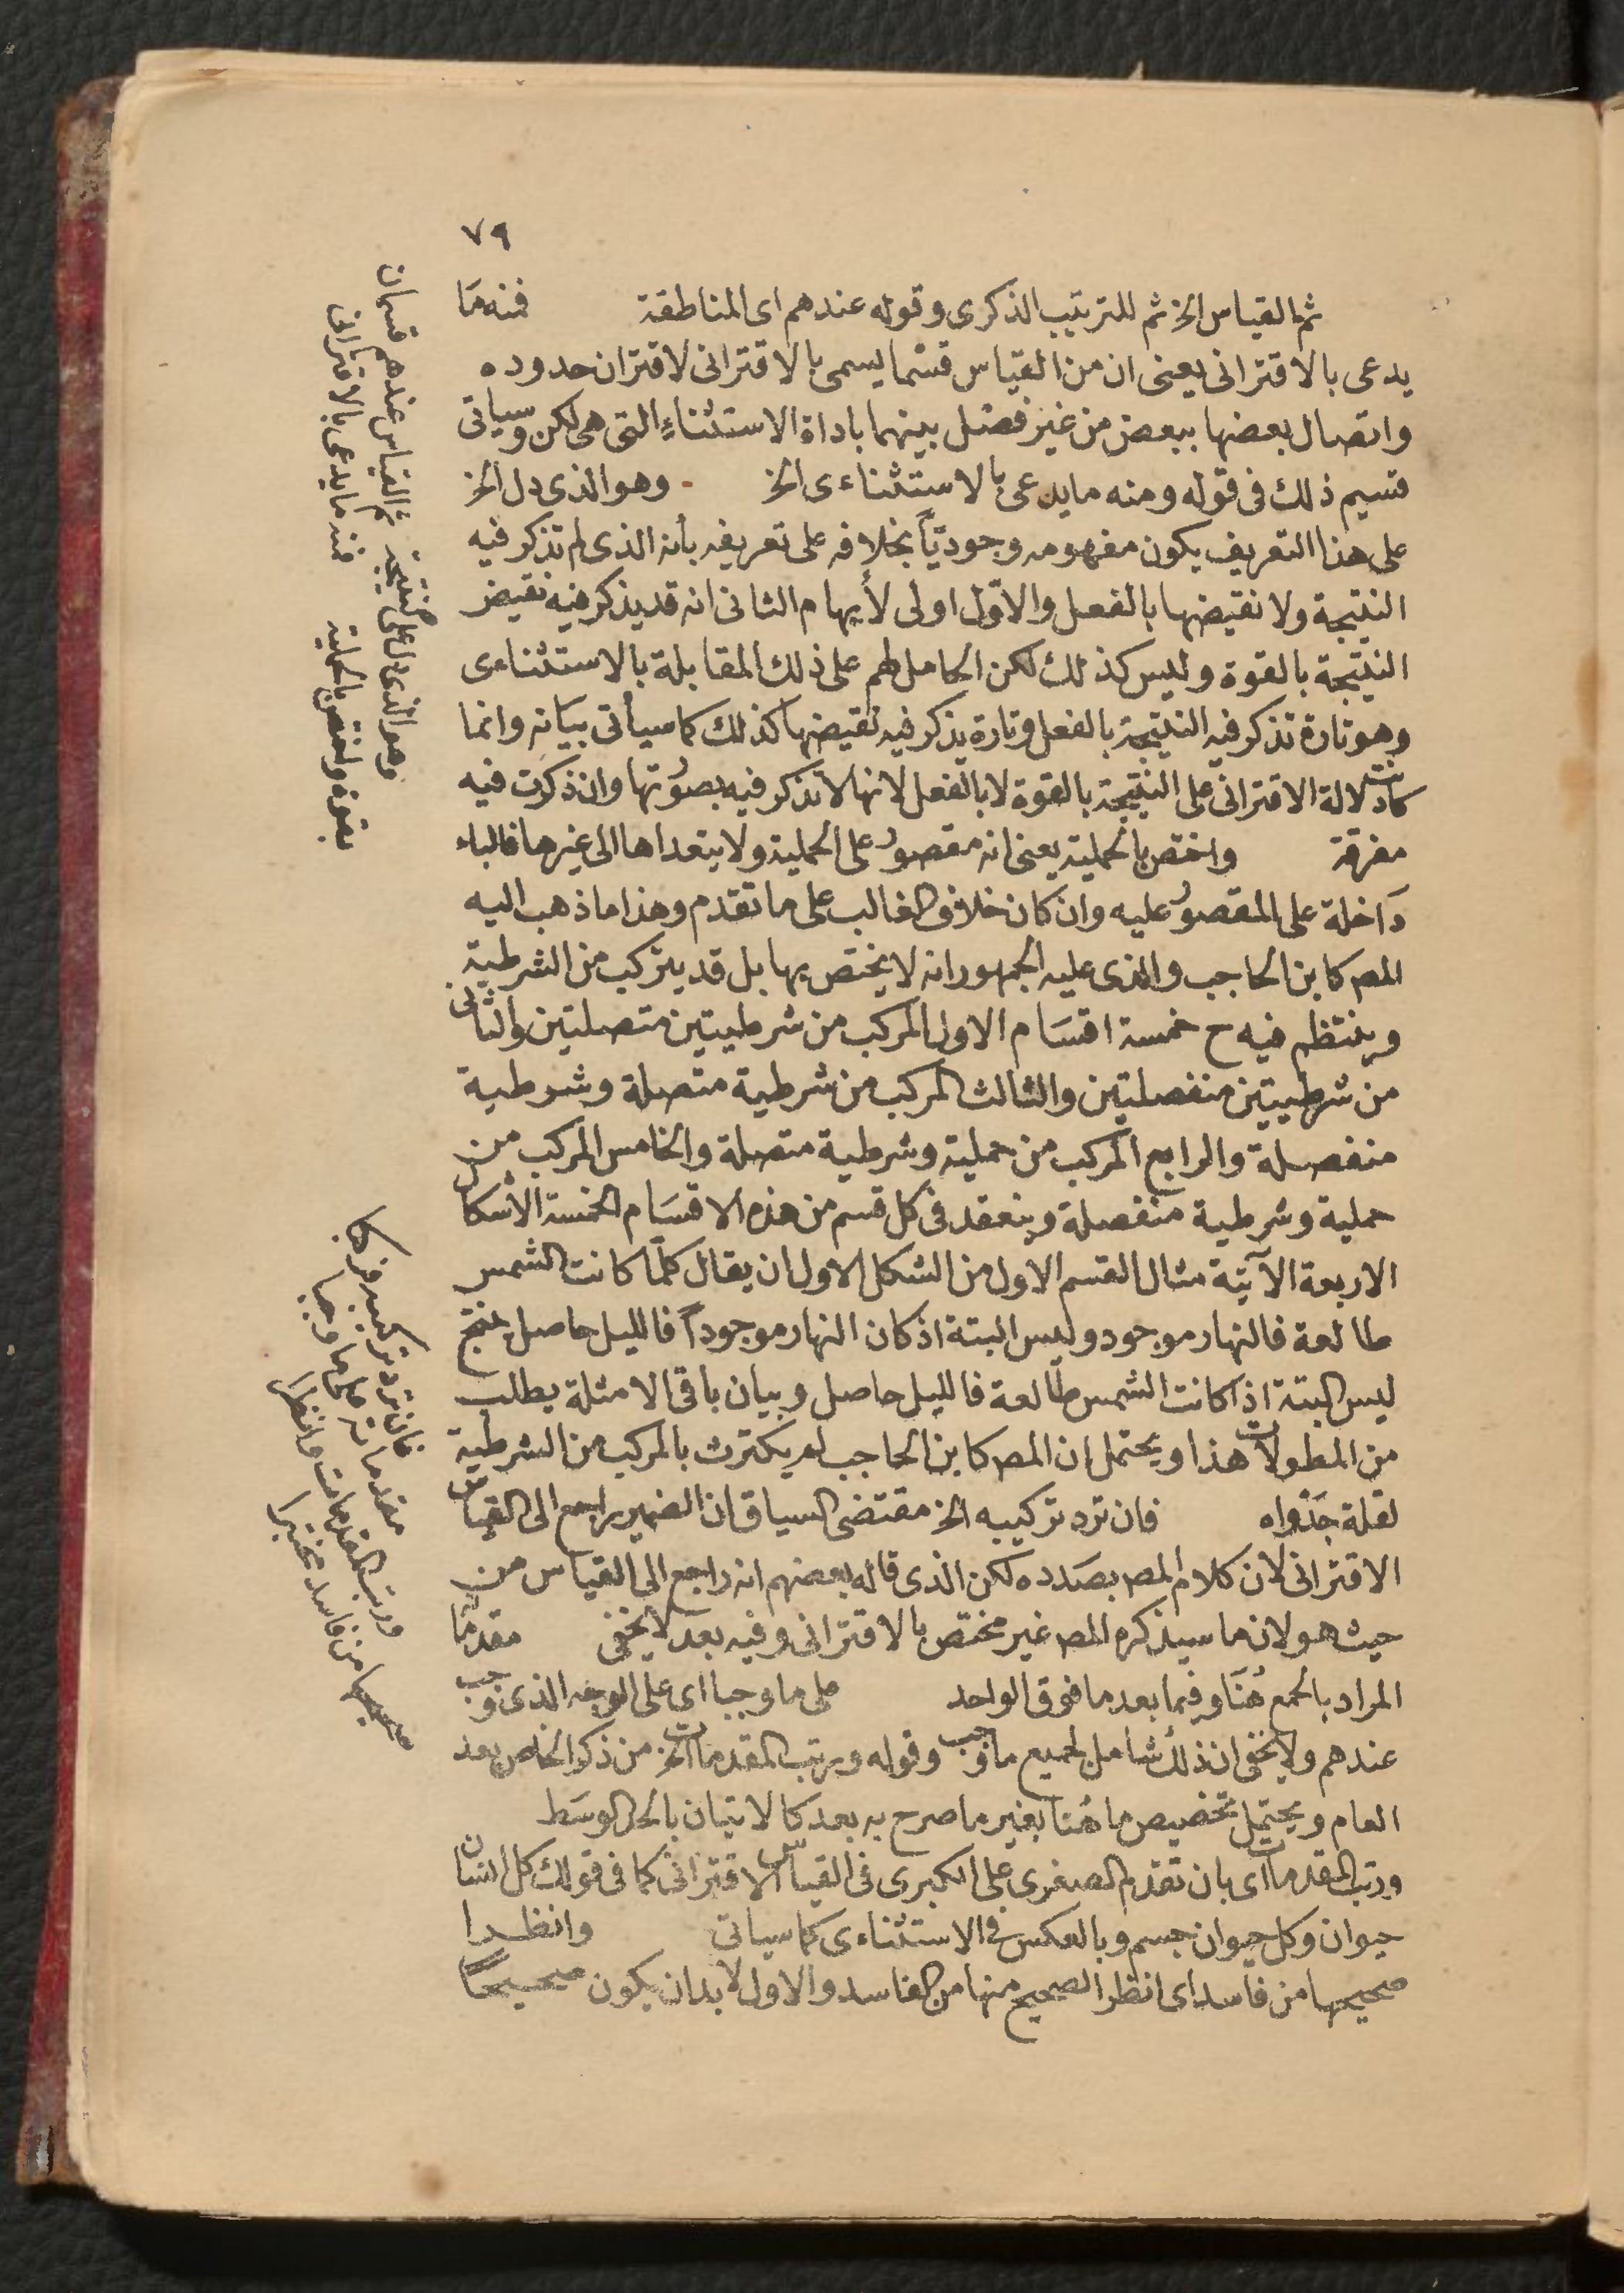 ٧٩
ثم القياس الخ ثم للترتيب الذكرى وقوله عندهم اى المناطقة فمنه مَا
يدعى بالاقترانى يعنى ان من القياس قسْما يسمى بالاقترانى لاقتران حدوده
واتصال بعضها ببعض من غير فصْل بينهما باداة الاستثناء التى هى لكن وسياتى
قسيم ذلك فى قوله ومنه ما يدعى بالاستثناءى الخ - وهو الذى دل الخ
على هذا التعريف يكون مفهومه وجوديّاً بخلافه على تعريفه بأنه الذى لم تذكر فيه
النتيجة ولا نقيضها بالفعل والاوّل اولى لأيهام الثانى انه قد يذكر فيه نقيض
النتيجة بالقوة وليس كذلك لكن الحامل لهم على ذلك المقابلة بالاستثناءى
وهو تارة تذكر فيه النتيجة بالفعل وتارة يذكر فيه نقيضها كذلك كما سيأتى بيَانه وانما
كانت دلالة الاقترانى على النتيجة بالقوة لا بالفعل لانها لا تذكر فيه بصُورتها وان ذكرت فيه
مفرقة واختص بالحملية يعنى انه مقصُور على الحملية ولا يتعداها الى غيرها فالباء
دَاخلة على المقصُور عليه وان كان خلاف الغالب على ما تقدم وهذا ما ذهب اليه
المصـ كابن الحاجب والذى عليه الجمهور انه لا يختص بها بل قد يتركب من الشرطية
وينتظم فيه ح خمسة اقسَام الاول المركب من شرطيتين متصلتين والثانى
من شرطيتين منفصلتين والثالث المركب من شرطية متصلة وشرطية
منفصلة والرابع المركب من حملية وشرطية متصلة والخامس المركب من
حملية وشرطية منفصلة وينعقد فى كل قسم من هذه الاقسَام الخمسة الأشكال
الاربعة الآتية مثال القسم الاول من الشكل الاول ان يقال كلّما كانت الشمس
طالعة فالنهار موجود وليس البتة اذ كان النهار موجوداً فالليل حاصل ينتج
ليس البتة اذا كانت الشمس طالعة فالليل حاصل وبيان باقى الامثلة يطلب
من المطولات هذا ويحتمل ان المصـ كابن الحاجب لم يكترث بالمركب من الشرطية
لقلة جَدْواه فان ترد تركيبه الخ مقتضى السياق ان الضمير راجع الى القياس
الاقترانى لان كلام المصـ بصَدده لكن الذى قاله بعضهم انه راجع الى القياس من
حيث هو لان ما سيذكره المصـ غير مختص بالاقترانى وفيه بعد لا يخفى مقدّما
المراد بالجمع هُنَا وفيما بعد ما فوق الواحد على ما وجبا اى على الوجه الذى وجب
عندهم ولا يخفى ان ذلك شامل لجميع ما وجب وقوله ورتب المقدمات الخ من ذكر الخاص بعد
العام ويحتمل تخصيص ما هُنا بغير ما صرح به بعد كالاتيان بالحد الوسَط
ورتب المقدمات اى بان تقدم الصغرى على الكبرى فى القياس الاقترانى كما فى قولك كل انسان
حيوان وكل حيوان جسم وبالعكس فى الاستثناءى كما سياتى وانظـرا
صحيحها من فاسد اى انظر الصحيح منها من الفاسد والاول لابد ان يكون صحيحاً
ثم القياس عندهم قسمان
فمنه ما يدعى بالاقترانى
وهو الذى دل على النتيجة
بقوة واختص بالحملية
فان ترد تركيبه فركبا
مقدماته على ما وجبا
ورتب المقدمات وانظرا
صحيحها من فاسد مختبرا